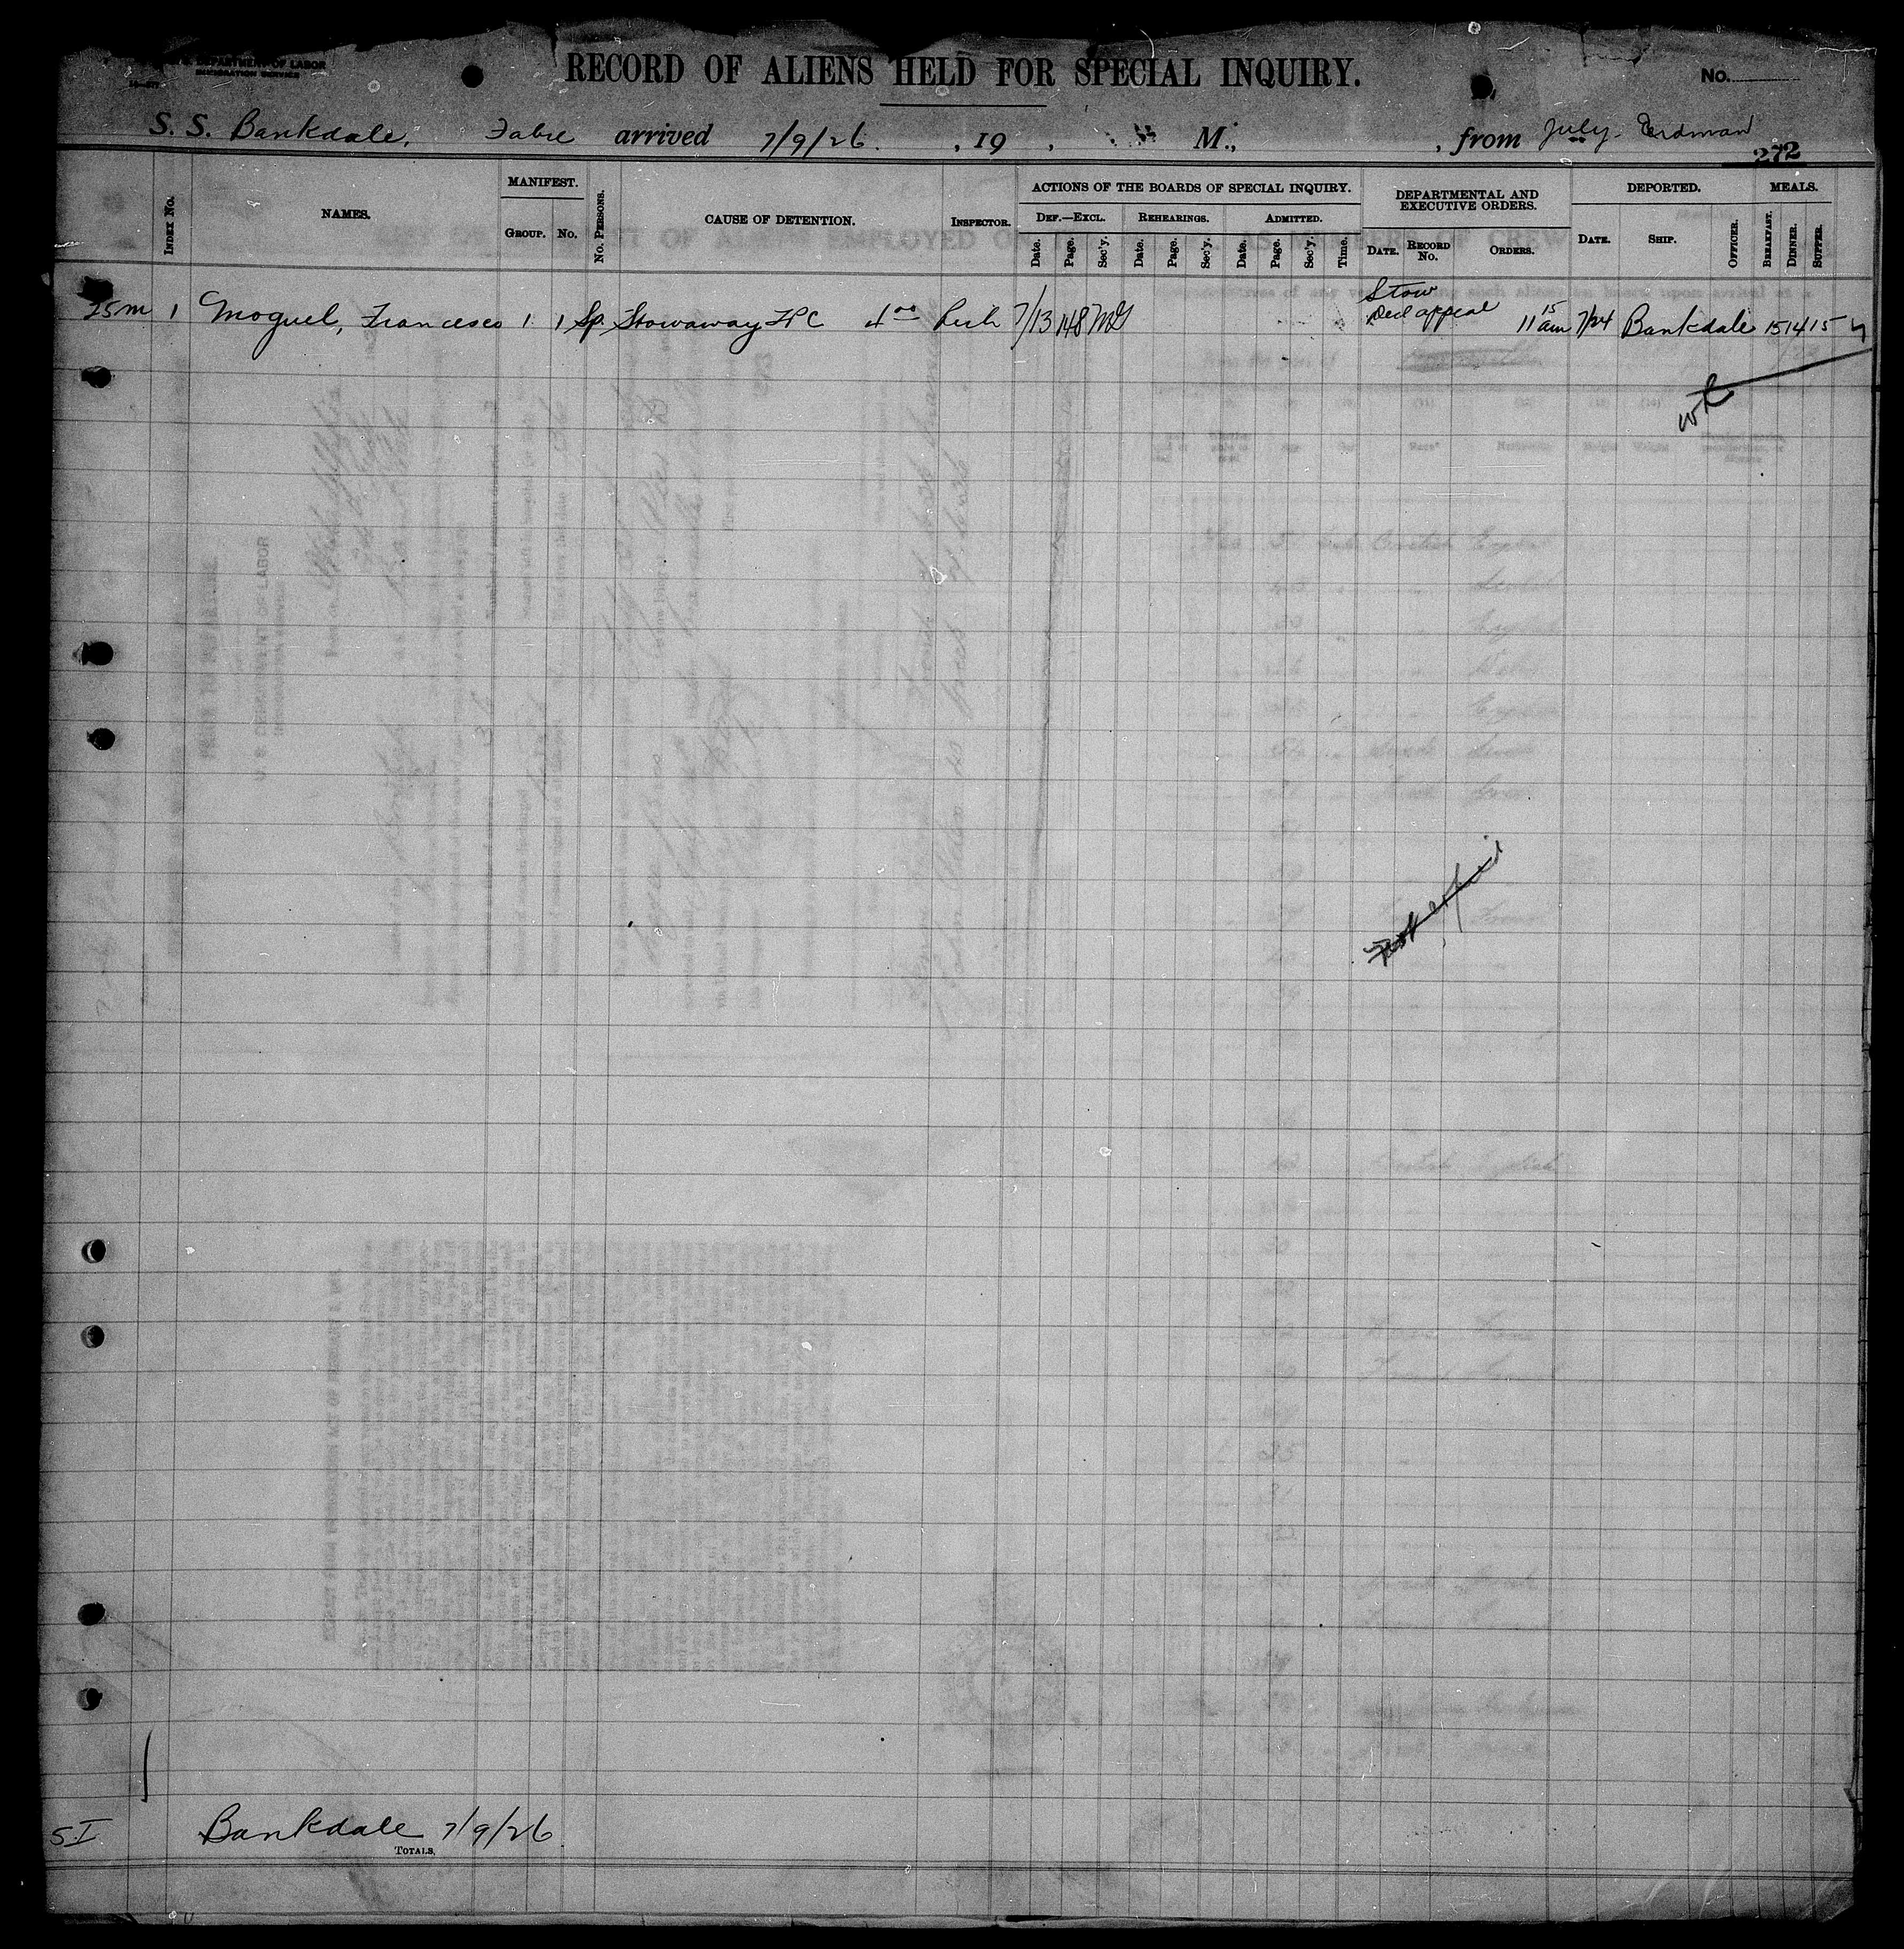 DEPARTMENT OF LABOR
IMMIGRATION SERVICE
RECORD OF ALIENS HELD FOR SPECIAL INQUIRY.
No.
S. S. Bankdale, Fabre arrived 7/9/26. , 19 , M., , from July Erdman
272
INDEX NO.
NAMES.
MANIFEST.
GROUP. NO.
NO. PERSONS.
CAUSE OF DETENTION.
INSPECTOR.
ACTIONS OF THE BOARDS OF SPECIAL INQUIRY.
DEF.—EXCL. REHEARINGS. ADMITTED.
Date. Page. Sec'y. Date. Page. Sec'y. Date. Page. Sec'y. Time.
DEPARTMENTAL AND
EXECUTIVE ORDERS.
DATE. RECORD NO. ORDERS.
DEPORTED.
DATE. SHIP. OFFICER.
MEALS.
BREAKFAST. DINNER. SUPPER.
25m 1 Moguel, Francesco 1 1 Sp. Stowaway LPC 7/13 148 Stow Decl appeal 11 15 am 7/24 Bankdale 15 14 15
S.I. Bankdale 7/9/26
TOTALS.